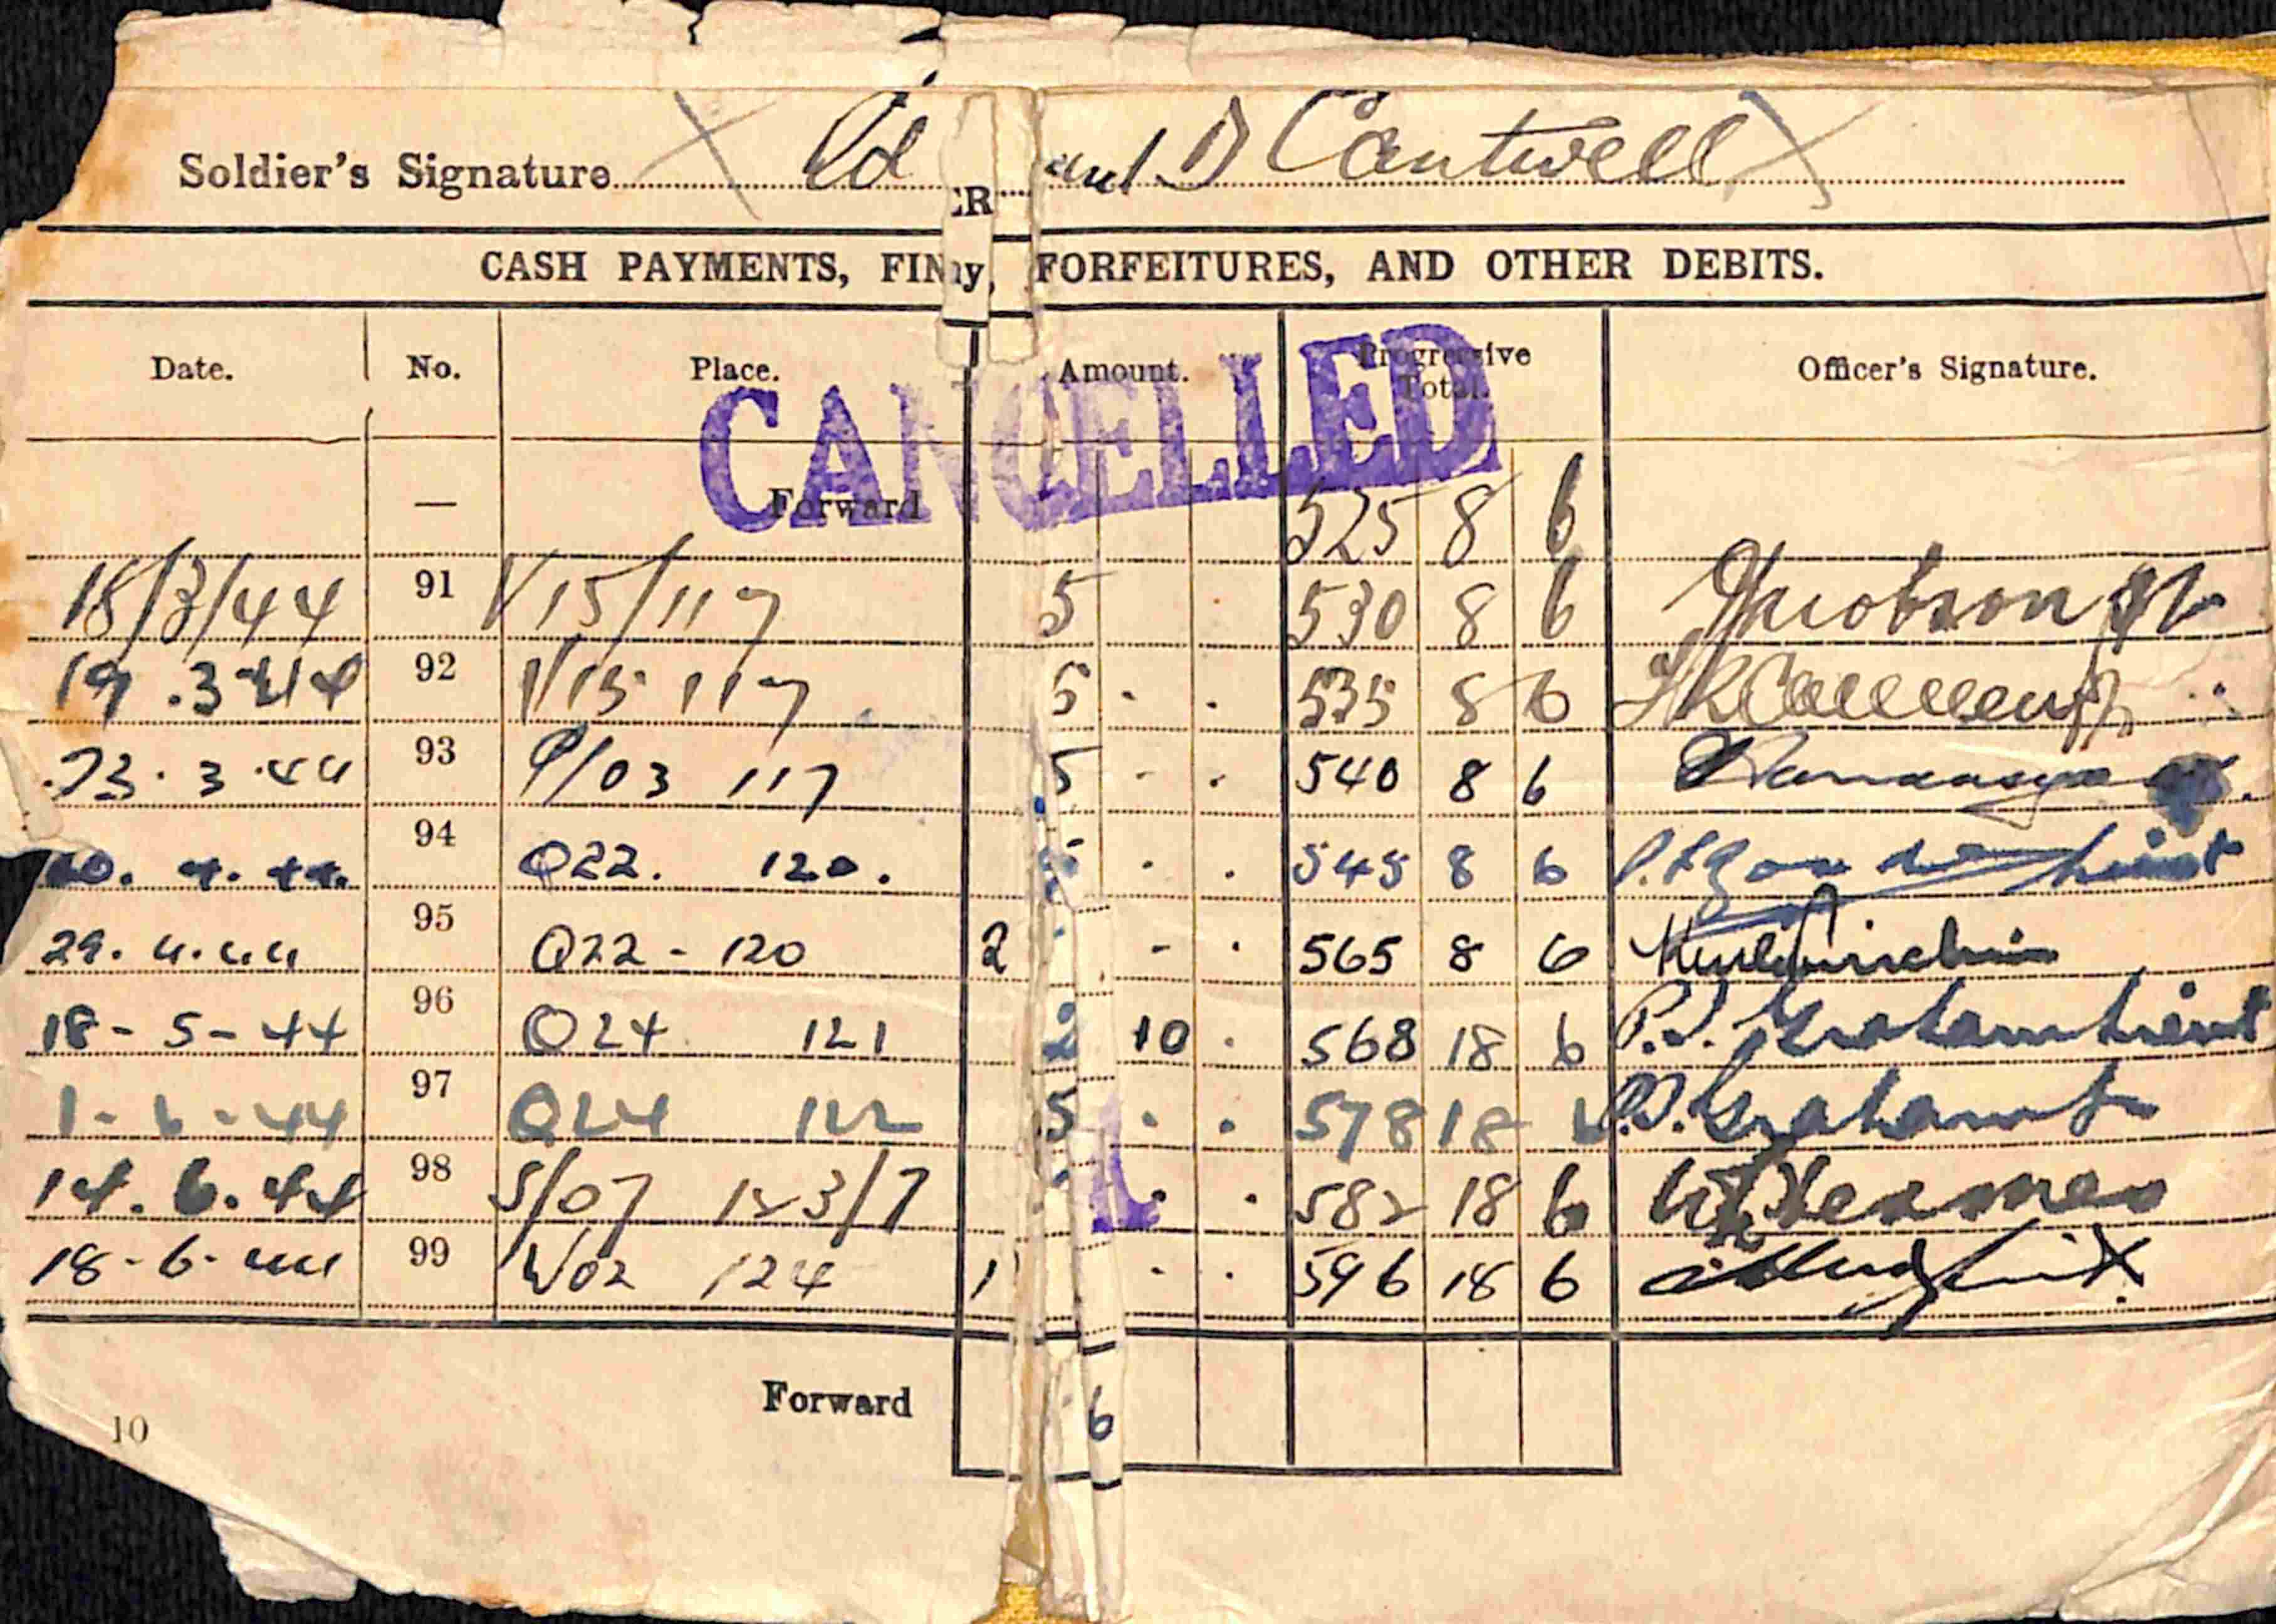 Soldier's Signature X Ed und D Cantwell X
ER
CASH PAYMENTS, FIN ay, FORFEITURES, AND OTHER DEBITS.
Date. No. Place. Amount. Progressive Total. Officer's Signature.
CANCELLED
— Forward 525 8 6
18/3/44 91 V15/117 5 . 530 8 6
19.3.44 92 V15 117 5 . . 535 8 6
23.3.44 93 P/03 117 5 - . 540 8 6
94 Q22. 120. 5 . . 545 8 6
29.4.44 95 Q22 - 120 2 - . 565 8 6
18-5-44 96 Q24 121 2 10 . 568 18 6 P.J. Graham Lieut
1-6-44 97 Q24 122 5 . . 578 18 6 P.J. Graham Lt
14.6.44 98 S/07 123/7 . . 582 18 6
18-6-44 99 W02 124 1 . . 596 18 6
Forward 6
10